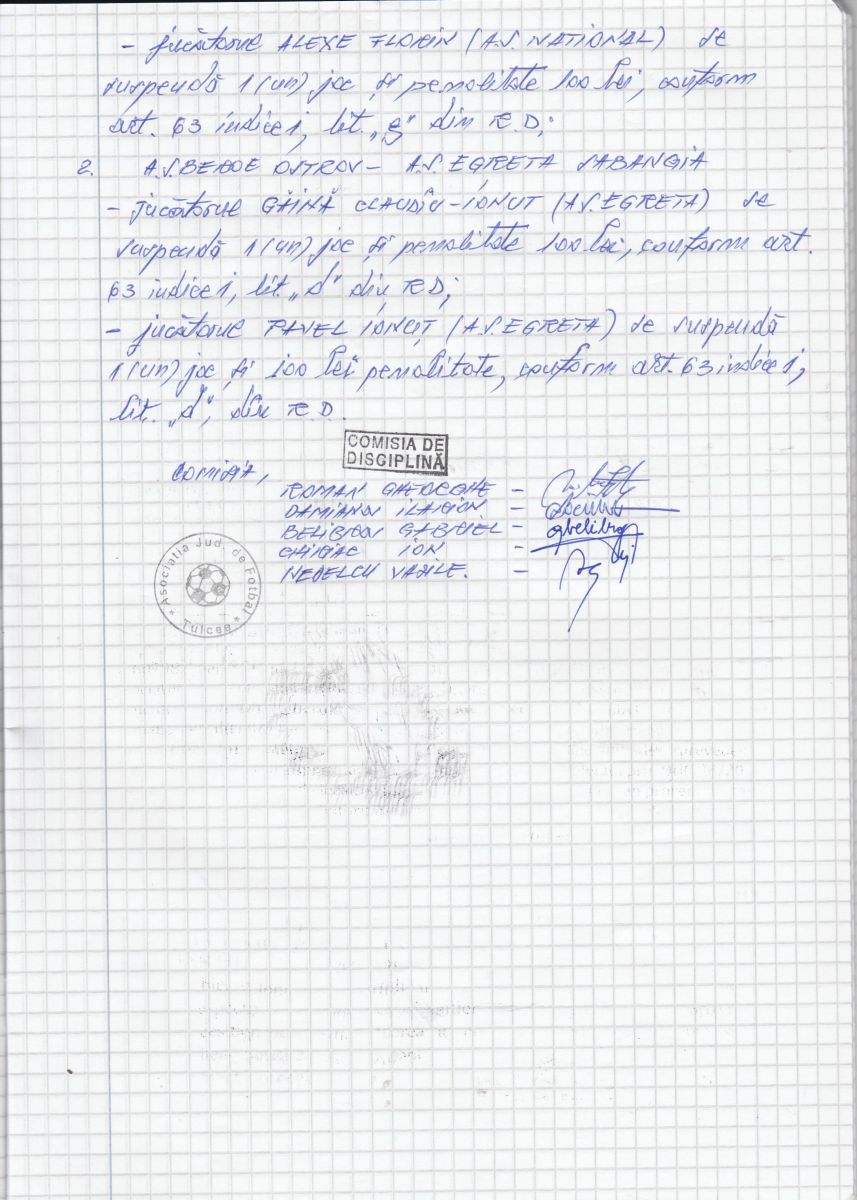 - jucătorul ALEXE FLORIN (A.S. NATIONAL) se
suspendă 1 (un) joc și penalitate 100 lei, conform
art. 63 indice 1, lit. „g" din R.D;
2. A.S. BEROE OSTROV - A.S. EGRETA SABANGIA
- jucătorul GĂINĂ CLAUDIU-IONUT (A.S. EGRETA) se
suspendă 1 (un) joc și penalitate 100 lei, conform art.
63 indice 1, lit. „d" din R.D;
- jucătorul PAVEL IONUȚ (A.S. EGRETA) se suspendă
1 (un) joc și 100 lei penalitate, conform art. 63 indice 1,
lit. „d", din R.D.
COMISIA DE
DISCIPLINĂ
COMISIA,
ROMAN GHEORGHE -
DAMIANOV ILARION -
BELIBOV GABRIEL -
CHIRIAC ION -
NEDELCU VASILE. -
* Asociatia Jud. de Fotbal * Tulcea